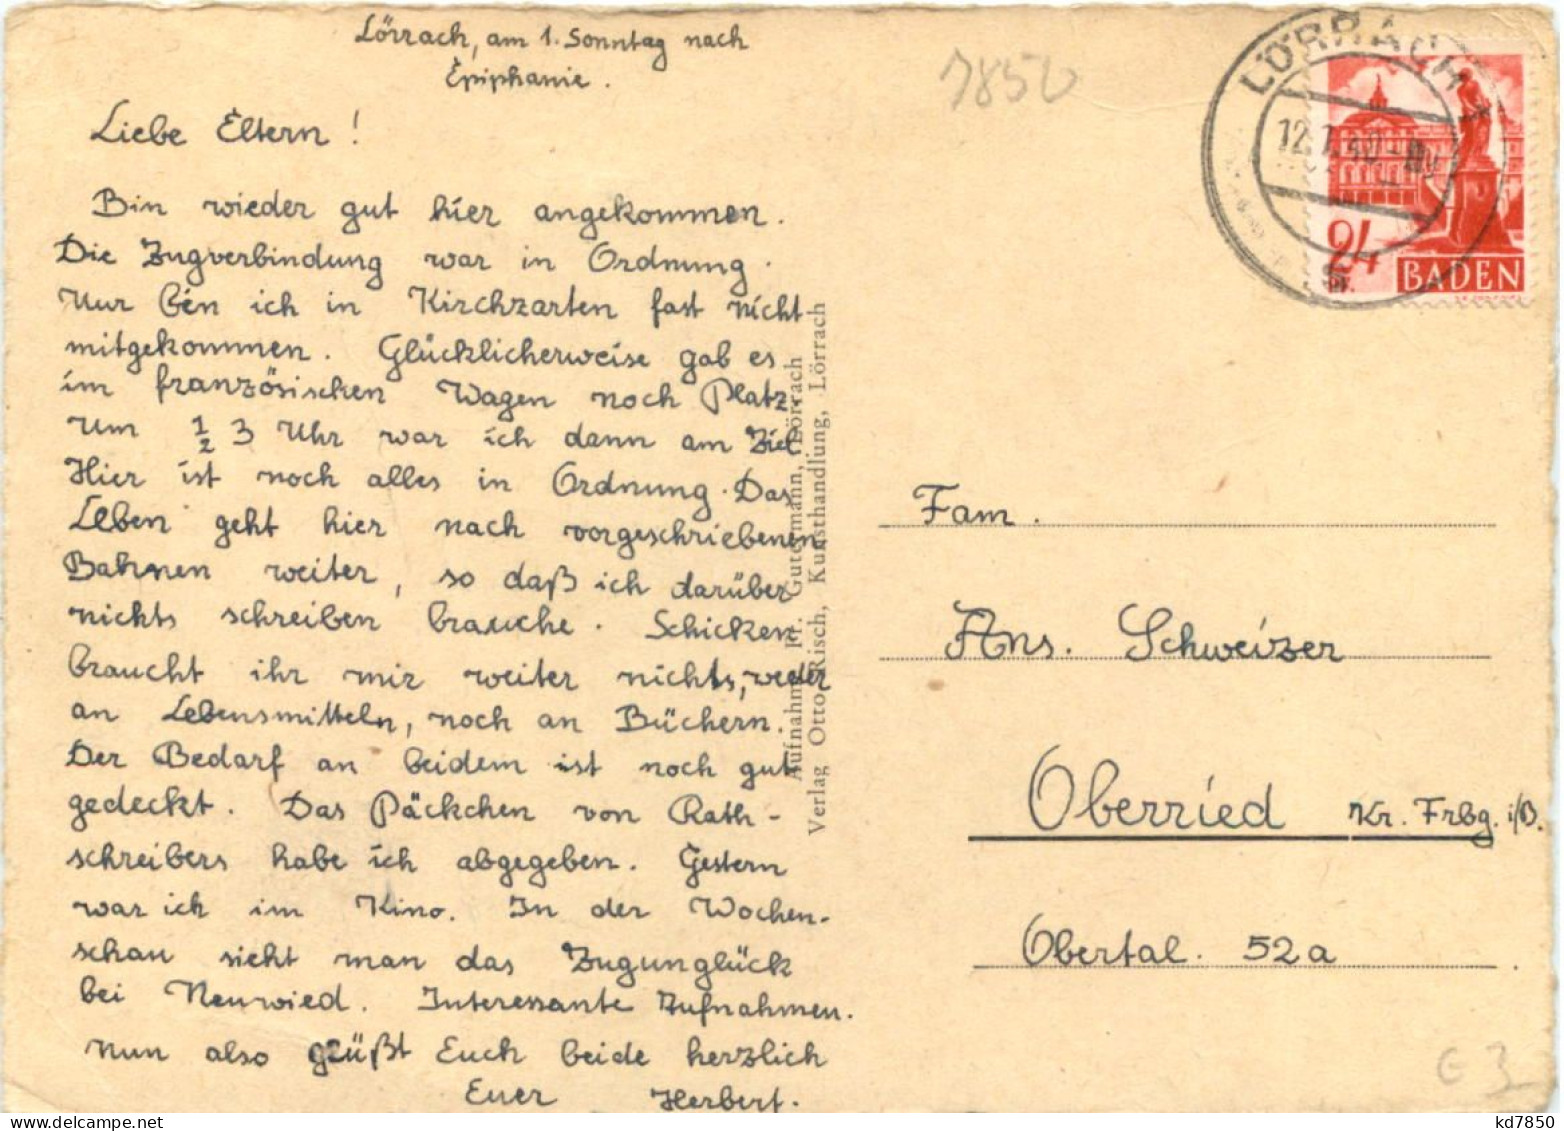 Lörrach, am 1. Sonntag nach
Epiphanie.
Liebe Eltern!
Bin wieder gut hier angekommen.
Die Zugverbindung war in Ordnung.
Nur bin ich in Kirchzarten fast nicht
mitgekommen. Glücklicherweise gab es
im französischen Wagen noch Platz.
Um 1/2 3 Uhr war ich dann am Ziel
Hier ist noch alles in Ordnung. Das
Leben geht hier nach vorgeschriebenen
Bahnen weiter, so daß ich darüber
nichts schreiben brauche. Schicken
braucht ihr mir weiter nichts, weder
an Lebensmitteln, noch an Büchern.
Der Bedarf an beidem ist noch gut
gedeckt. Das Päckchen von Rath-
schreibers habe ich abgegeben. Gestern
war ich im Kino. In der Wochen-
schau sieht man das Zugunglück
bei Neuwied. Interessante Aufnahmen.
Nun also grüßt Euch beide herzlich
Euer Herbert.
Aufnahme Fr. Gutermann, Lörrach
Verlag Otto Risch, Kunsthandlung, Lörrach
7850
LÖRRACH
12.1.
24
BADEN
Fam.
Ans. Schweizer
Oberried Kr. Frbg. i/B.
Obertal. 52a
G 3
kd7850